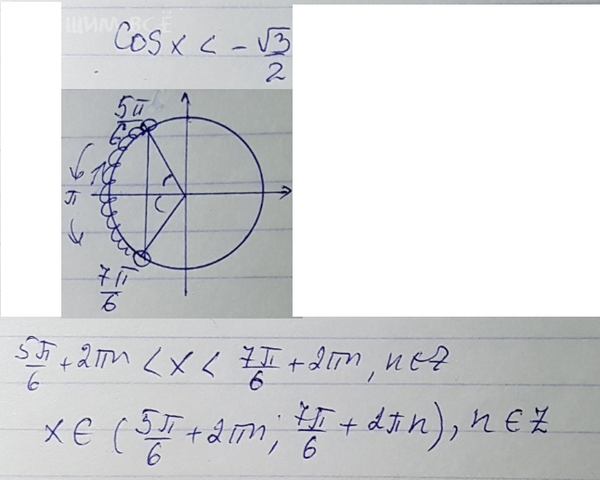 cos x < - √3/2
5π/6
π
7π/6
5π/6 + 2πn < x < 7π/6 + 2πn, n ∈ Z
x ∈ (5π/6 + 2πn; 7π/6 + 2πn), n ∈ Z